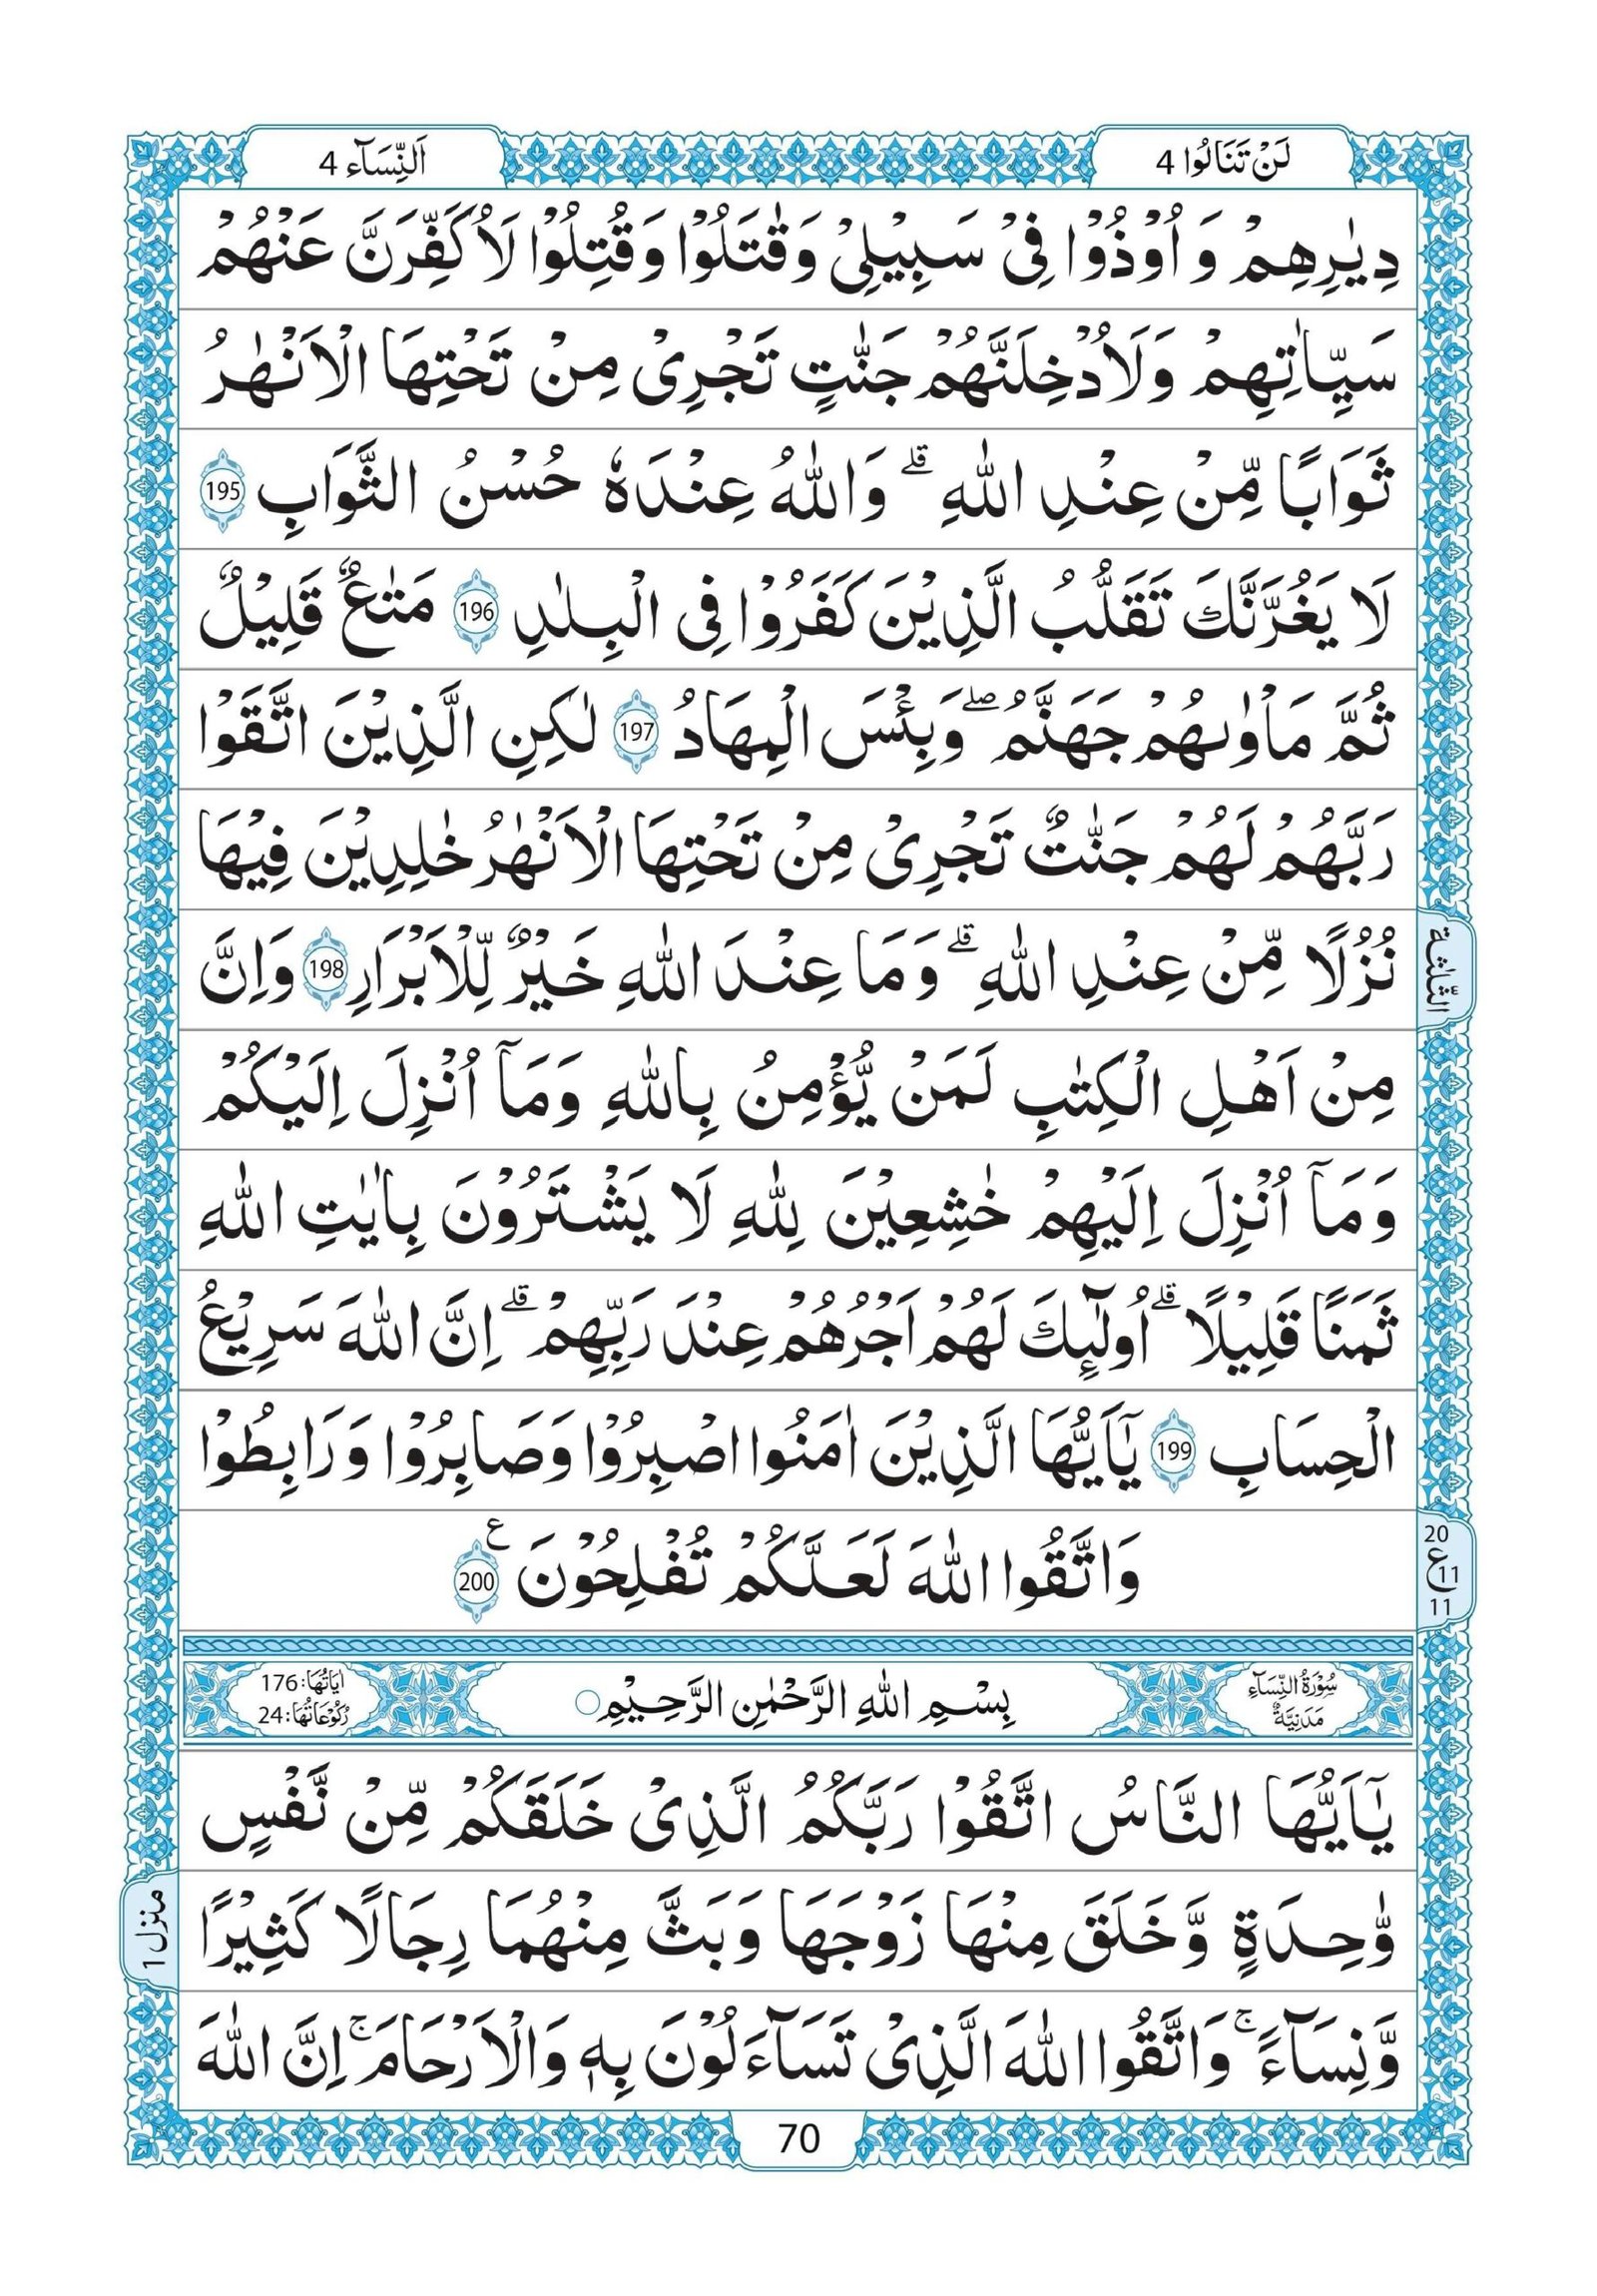 لَنْ تَنَالُوا 4
اَلنِّسَآء 4
دِيٰرِهِمْ وَ اُوْذُوْا فِىْ سَبِيْلِىْ وَقٰتَلُوْا وَقُتِلُوْا لَاُكَفِّرَنَّ عَنْهُمْ
سَيِّاٰتِهِمْ وَلَاُدْخِلَنَّهُمْ جَنّٰتٍ تَجْرِىْ مِنْ تَحْتِهَا الْاَنْهٰرُ
ثَوَابًا مِّنْ عِنْدِ اللّٰهِ ؕ وَاللّٰهُ عِنْدَهٗ حُسْنُ الثَّوَابِ 195
لَا يَغُرَّنَّكَ تَقَلُّبُ الَّذِيْنَ كَفَرُوْا فِى الْبِلٰدِ 196 مَتٰعٌ قَلِيْلٌ
ثُمَّ مَاْوٰىهُمْ جَهَنَّمُ ۖ وَبِئْسَ الْمِهَادُ 197 لٰكِنِ الَّذِيْنَ اتَّقَوْا
رَبَّهُمْ لَهُمْ جَنّٰتٌ تَجْرِىْ مِنْ تَحْتِهَا الْاَنْهٰرُ خٰلِدِيْنَ فِيْهَا
نُزُلًا مِّنْ عِنْدِ اللّٰهِ ۗ وَمَا عِنْدَ اللّٰهِ خَيْرٌ لِّلْاَبْرَارِ 198 وَاِنَّ
الثلٰثة
مِنْ اَهْلِ الْكِتٰبِ لَمَنْ يُّؤْمِنُ بِاللّٰهِ وَمَاۤ اُنْزِلَ اِلَيْكُمْ
وَمَاۤ اُنْزِلَ اِلَيْهِمْ خٰشِعِيْنَ لِلّٰهِ لَا يَشْتَرُوْنَ بِاٰيٰتِ اللّٰهِ
ثَمَنًا قَلِيْلًا ۗ اُولٰٓئِكَ لَهُمْ اَجْرُهُمْ عِنْدَ رَبِّهِمْ ۗ اِنَّ اللّٰهَ سَرِيْعُ
الْحِسَابِ 199 يٰۤاَيُّهَا الَّذِيْنَ اٰمَنُوا اصْبِرُوْا وَصَابِرُوْا وَرَابِطُوْا
وَاتَّقُوا اللّٰهَ لَعَلَّكُمْ تُفْلِحُوْنَ 200 ع
20
ع 11
11
سُوْرَةُ النِّسَآءِ
مَدَنِيَّةٌ
بِسْمِ اللّٰهِ الرَّحْمٰنِ الرَّحِيْمِ ○
اٰيَاتُهَا: 176
رُكُوْعَاتُهَا: 24
يٰۤاَيُّهَا النَّاسُ اتَّقُوْا رَبَّكُمُ الَّذِىْ خَلَقَكُمْ مِّنْ نَّفْسٍ
وّٰحِدَةٍ وَّخَلَقَ مِنْهَا زَوْجَهَا وَبَثَّ مِنْهُمَا رِجَالًا كَثِيْرًا
منزل 1
وَّنِسَآءً ۚ وَاتَّقُوا اللّٰهَ الَّذِىْ تَسَآءَلُوْنَ بِهٖ وَالْاَرْحَامَ ۚ اِنَّ اللّٰهَ
70